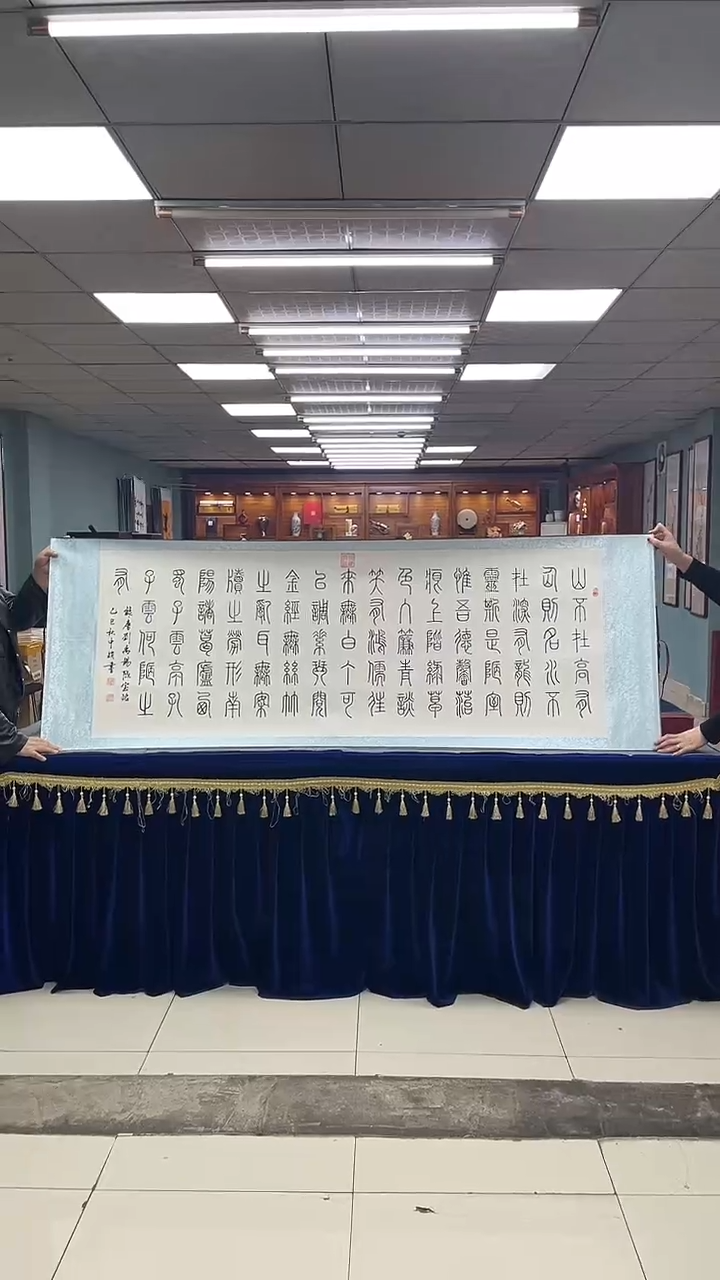 山不在高有
仙則名水不
在深有龍則
靈斯是陋室
惟吾德馨苔
痕上階綠草
色入簾青談
笑有鴻儒往
來無白丁可
以調素琴閱
金經無絲竹
之亂耳無案
牘之勞形南
陽諸葛廬西
蜀子雲亭孔
子雲何陋之
有
錄唐劉禹錫陋室銘
乙巳秋書